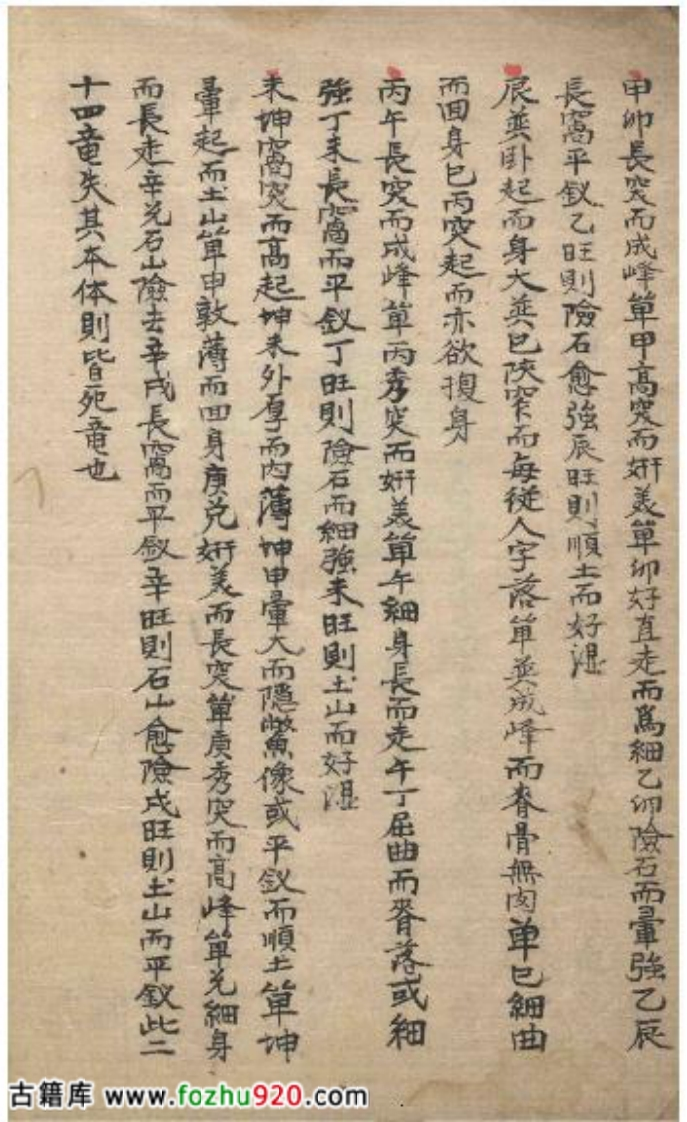 甲卯長突而成峰单甲高突而妍美单卯好直走而為細乙卯險石而暈強乙辰
長窩平釵乙旺則險石愈強辰旺則順土而好濕
辰巽卧起而身大巽巳陜窄而每從人字落单巽成峰而脊骨無肉单巳細曲
而回身巳丙突起而亦欲
身
丙午長突而成峰单丙秀突而妍美单午細身長而走午丁屈曲而脊落或細
強丁未長窩而平釵丁旺則險石而細強未旺則土山而好濕
未坤窩突而高起坤未外厚而内薄坤申暈大而隱鱉像或平釵而順土单坤
暈起而土山单申敦薄而回身庚兌妍美而長突单庚秀突而高峰单兌細身
而長走辛兌石山險去辛戌長窩而平釵辛旺則石山愈險戌旺則土山而平釵此二
十四竜失其本体則皆死竜也
古籍库 www.fozhu920.com